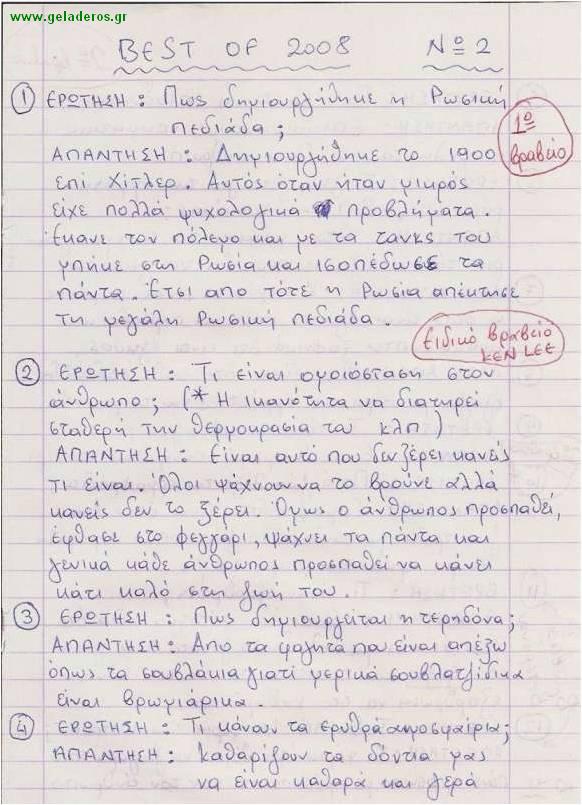 www.geladeros.gr
BEST OF 2008 Nº 2
① ΕΡΩΤΗΣΗ : Πως δημιουργήθηκε η Ρωσική
πεδιάδα ;
1º
βραβείο
ΑΠΑΝΤΗΣΗ : Δημιουργήθηκε το 1900
επί Χίτλερ. Αυτός όταν ήταν μικρός
είχε πολλά ψυχολογικά προβλήματα.
Έκανε τον πόλεμο και με τα τανκς του
μπήκε στη Ρωσία και ισοπέδωσε τα
πάντα. Έτσι από τότε η Ρωσία απέκτησε
τη μεγάλη Ρωσική πεδιάδα.
Ειδικό βραβείο
KEN LEE
② ΕΡΩΤΗΣΗ : Τι είναι ομοιόσταση στον
άνθρωπο ; (* Η ικανότητα να διατηρεί
σταθερή την θερμοκρασία του κλπ)
ΑΠΑΝΤΗΣΗ : Είναι αυτό που δεν ξέρει κανείς
τι είναι. Όλοι ψάχνουν να το βρούνε αλλά
κανείς δεν το ξέρει. Όμως ο άνθρωπος προσπαθεί,
έφθασε στο φεγγάρι, ψάχνει τα πάντα και
γενικά κάθε άνθρωπος προσπαθεί να κάνει
κάτι καλό στη ζωή του.
③ ΕΡΩΤΗΣΗ : Πως δημιουργείται η τερηδόνα;
ΑΠΑΝΤΗΣΗ : Απο τα φαγητά που είναι απέξω
όπως τα σουβλάκια γιατί μερικά σουβλατζίδικα
είναι βρωμιάρικα.
④ ΕΡΩΤΗΣΗ : Τι κάνουν τα ερυθρά αιμοσφαίρια;
ΑΠΑΝΤΗΣΗ : Καθαρίζουν τα δόντια μας
να είναι καθαρά και γερά